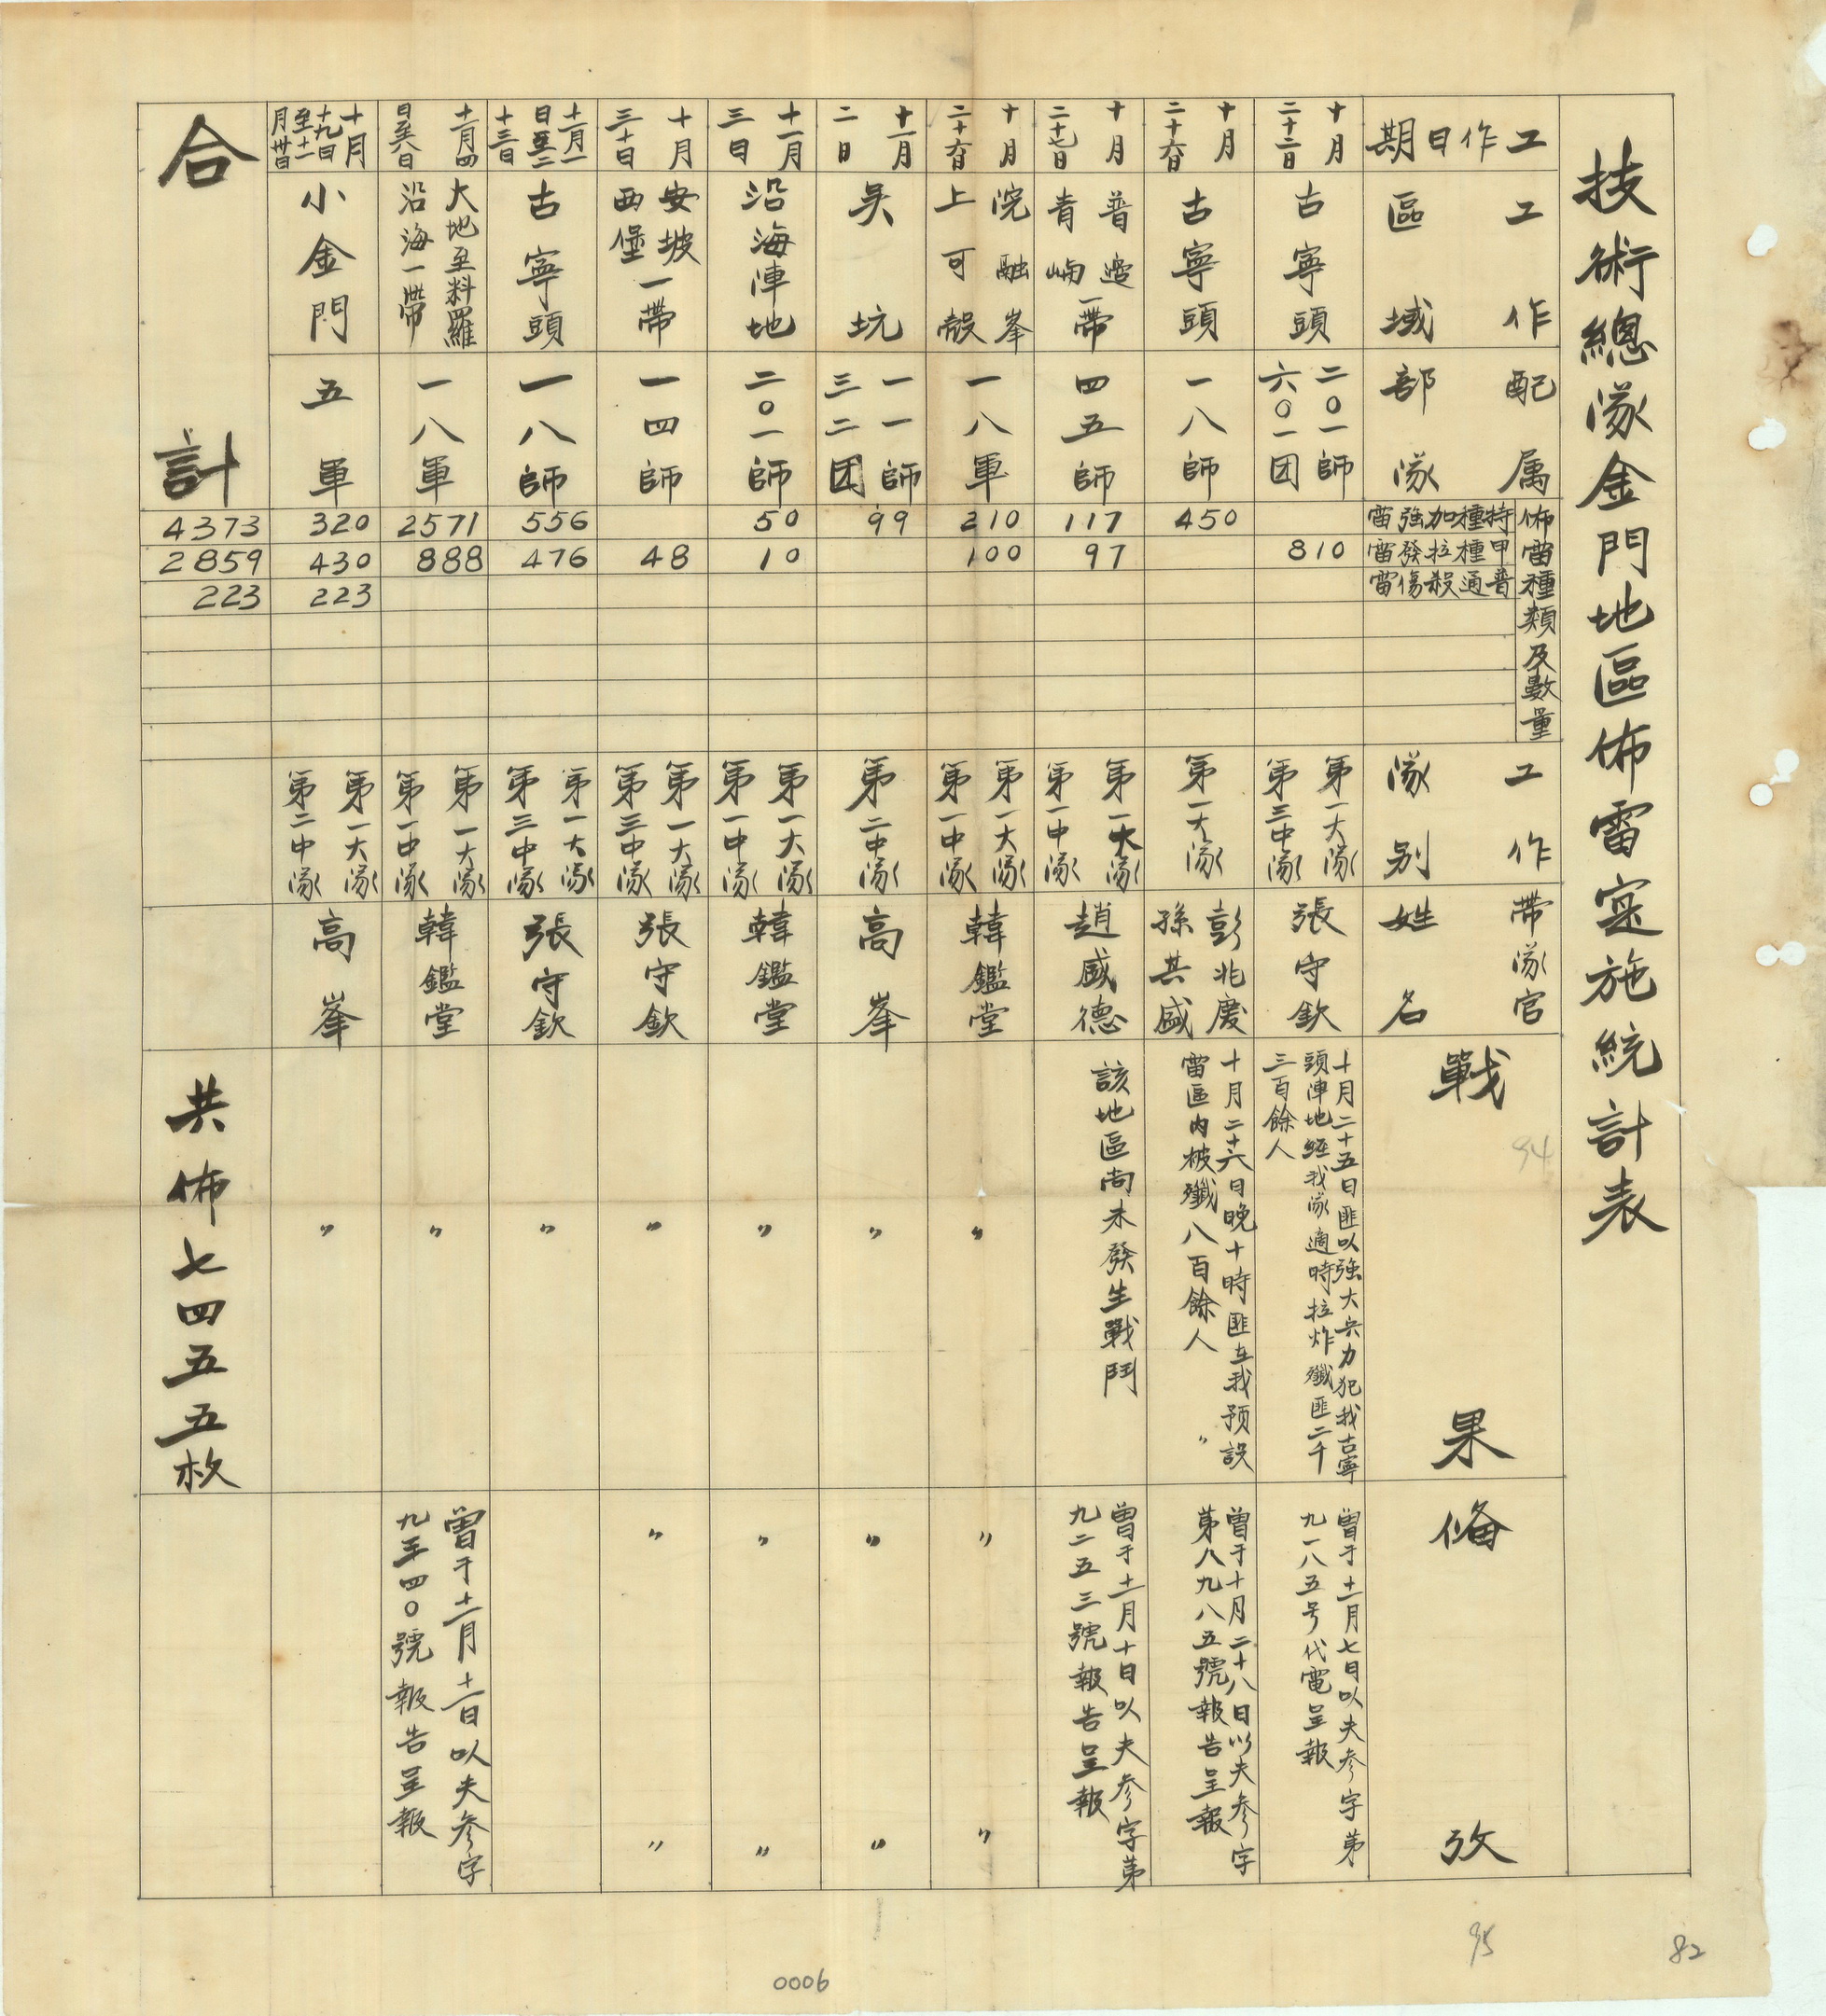 技術總隊金門地區佈雷寔施統計表
工作日期
工作區域
配属部隊
佈雷種類及數量
特種加強雷
甲種拉發雷
普通殺傷雷
工作隊別
帶隊官姓名
戰果
俻攷
十月
二十二日
古寧頭
二〇一師
六〇一团
810
第一大隊
第三中隊
張守欽
十月二十五日匪以強大兵力犯我古寧
頭陣地經我隊適時拉炸殲匪二千
三百餘人
曾于十一月七日以夫参字第
九一八五号代電呈報
十月
二十六日
古寧頭
一八師
450
第一大隊
彭兆慶
孫其盛
十月二十六日晚十時匪在我預設〃
雷區内被殲八百餘人
曾于十月二十八日以夫参字
第八九八五號報告呈報
十月
二十七日
普邊
青嶼一帶
四五師
117
97
第一大隊
第一中隊
趙盛德
該地區尚未發生戰鬥
曾于十一月十日以夫参字第
九二五三號報告呈報
十月
二十六日
浣融峯
上可殼
一八軍
210
100
第一大隊
第一中隊
韓鑑堂
〃
〃
〃
十一月
二日
吴坑
一一師
三二团
99
第二中隊
高峯
〃
〃
〃
十一月
三日
沿海陣地
二〇一師
50
10
第一大隊
第一中隊
韓鑑堂
〃
〃
〃
十月
三十日
安坡
西堡一帶
一四師
48
第一大隊
第三中隊
張守欽
〃
〃
〃
十一月一
日至二
十三日
古寧頭
一八師
556
476
第一大隊
第三中隊
張守欽
〃
十一月四
日至八日
大地至料羅
沿海一帶
一八軍
2571
888
第一大隊
第一中隊
韓鑑堂
〃
曾于十一月十一日以夫参字
九三四〇號報告呈報
十月
十九日
至十一
月廿日
小金門
五軍
320
430
223
第一大隊
第二中隊
高峯
〃
合計
4373
2859
223
共佈七四五五枚
94
95
82
0006